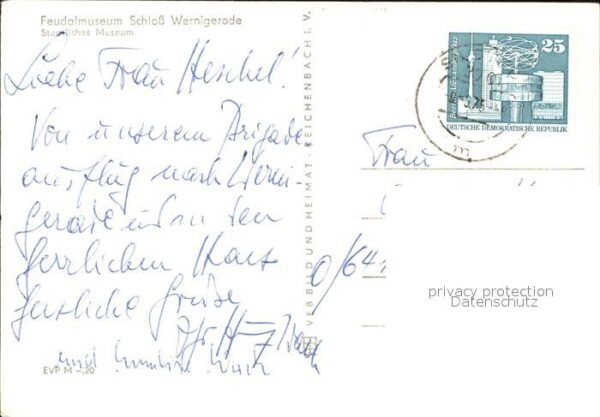 Feudalmuseum Schloß Wernigerode
Staatliches Museum
Liebe Frau Heschel!
Von unserem Brigade
ausflug nach Werni-
gerode und in den
herrlichen Harz
herzliche Grüße
und
EVP M –,20
VEB BILD UND HEIMAT, REICHENBACH I. V.
25
Berlin Alexanderplatz
DEUTSCHE DEMOKRATISCHE REPUBLIK
Frau
privacy protection
Datenschutz